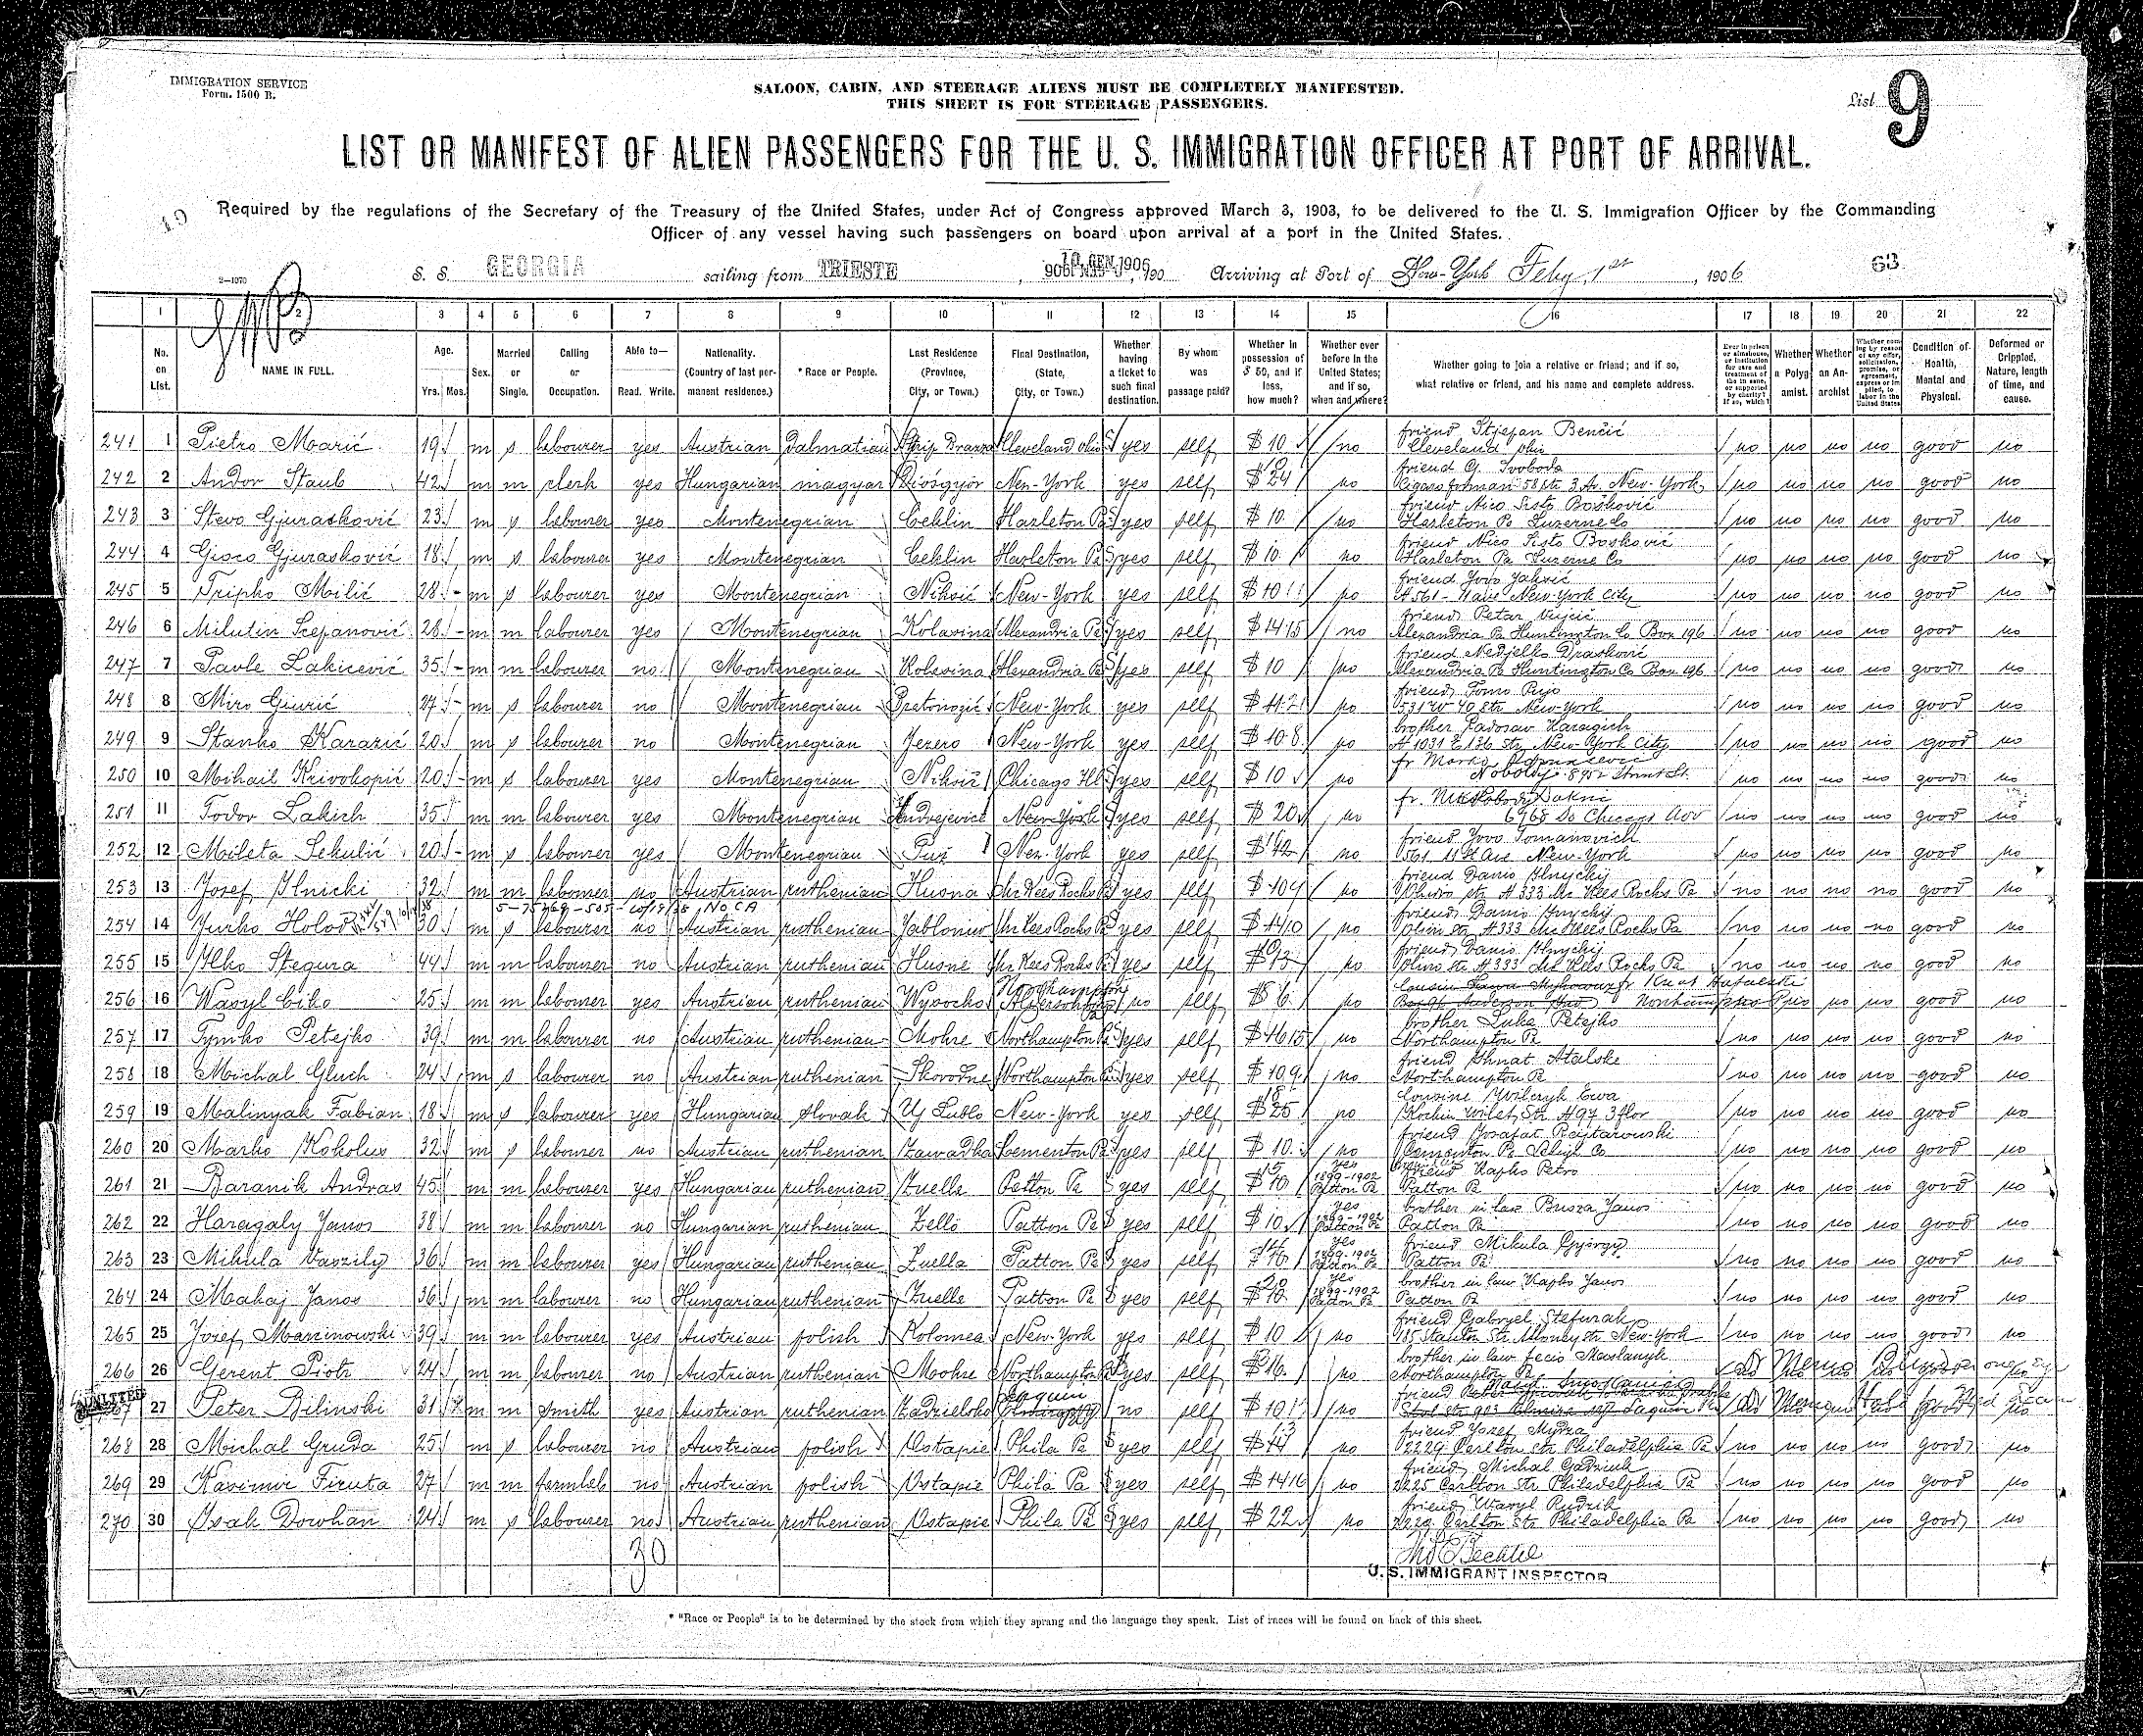 IMMIGRATION SERVICE
Form. 1500 B.
SALOON, CABIN, AND STEERAGE ALIENS MUST BE COMPLETELY MANIFESTED.
THIS SHEET IS FOR STEERAGE PASSENGERS.
List 9
LIST OR MANIFEST OF ALIEN PASSENGERS FOR THE U. S. IMMIGRATION OFFICER AT PORT OF ARRIVAL.
Required by the regulations of the Secretary of the Treasury of the United States, under Act of Congress approved March 3, 1903, to be delivered to the U. S. Immigration Officer by the Commanding
Officer of any vessel having such passengers on board upon arrival at a port in the United States.
S. S. GEORGIA sailing from TRIESTE, 10 GEN 1906, 190 Arriving at Port of New-York Feby 1st, 1906 63
2-1070
1 2 3 4 5 6 7 8 9 10 11 12 13 14 15 16 17 18 19 20 21 22
No. on List. NAME IN FULL. Age. Yrs. Mos. Sex. Married or Single. Calling or Occupation. Able to— Read. Write. Nationality. (Country of last permanent residence.) * Race or People. Last Residence (Province, City, or Town.) Final Destination, (State, City, or Town.) Whether having a ticket to such final destination. By whom was passage paid? Whether in possession of $ 50, and if less, how much? Whether ever before in the United States; and if so, when and where? Whether going to join a relative or friend; and if so, what relative or friend, and his name and complete address. Ever in prison or almshouse, or institution for care and treatment of the insane, or supported by charity? If so, which? Whether a Polygamist. Whether an Anarchist Whether coming by reason of any offer, solicitation, promise, or agreement, express or implied, to labor in the United States Condition of Health, Mental and Physical. Deformed or Crippled, Nature, length of time, and cause.
241 1 Pietro Marić 19 m s labourer yes Austrian Dalmatian Cleveland Ohio yes self $ 10 no friend Stjepan Benčić Cleveland Ohio no no no no good no
242 2 Andor Staub 42 m m clerk yes Hungarian magyar Diósgyör New-York yes self $ 24 no friend G. Svoboda 58 str 3 Av. New-York no no no no good no
243 3 Stevo Gjurasković 23 m s labourer yes Montenegrian Ceklin Hazleton Pa yes self $ 10 no friend Nico Sisto Bosković Hazleton Pa Luzerne Co no no no no good no
244 4 Gioco Gjurasković 18 m s labourer yes Montenegrian Ceklin Hazleton Pa yes self $ 10 no friend Nico Sisto Bosković Hazleton Pa Luzerne Co no no no no good no
245 5 Tripko Milić 28 m s labourer yes Montenegrian Nikšić New-York yes self $ 10 no friend New-York City no no no no good no
246 6 Milutin Scepanović 28 m m labourer yes Montenegrian Kolasina Alexandria Pa yes self $ 14 15 no friend Petar Alexandria Pa Huntington Co Box 196 no no no no good no
247 7 Pavle Lakicević 35 m m labourer no Montenegrian Kolasina Alexandria Pa yes self $ 10 no friend Nedjelko Drasković Alexandria Pa Huntington Co Box 196 no no no no good no
248 8 Miro Giurić 27 m s labourer no Montenegrian New-York yes self no friend Tomo 531 W 40 Str New-York no no no no good no
249 9 Stanko Karazić 20 m s labourer no Montenegrian Jezero New-York yes self $ 10 8 no brother Radosaw Karagich New-York City no no no no good no
250 10 Mihail Krivokopić 20 m s labourer yes Montenegrian Nikšić Chicago Ill yes self $ 10 no fr Marko no no no no good no
251 11 Todor Lakich 35 m m labourer yes Montenegrian Andrejevica New-York yes self $ 20 no fr. 6968 So Chicago Ave no no no no good no
252 12 Mileta Sekulić 20 m s labourer yes Montenegrian New-York yes self no friend Jovo Tomanovich 561 11th Ave New-York no no no no good no
253 13 Josef Ilnicki 32 m m labourer no Austrian ruthenian Husna Mc Kees Rocks Pa yes self no friend Danio Ilnyckij str # 333 Mc Kees Rocks Pa no no no no good no
254 14 Jurko Holod 30 m s labourer no Austrian ruthenian Mc Kees Rocks Pa yes self no friend Danio Ilnyckij str # 333 Mc Kees Rocks Pa no no no no good no
255 15 Ilko Stegura 44 m m labourer no Austrian ruthenian Husne Mc Kees Rocks Pa yes self no friend Danio Ilnyckij str # 333 Mc Kees Rocks Pa no no no no good no
256 16 Wasyl Ciko 25 m m labourer yes Austrian ruthenian Wysocko Northampton no self $ 6 no cousin no no no good no
257 17 Tymko Petejko 39 m m labourer no Austrian ruthenian Mohre Northampton Pa yes self no brother Luka Petejko Northampton Pa no no no no good no
258 18 Michal Gluch 24 m s labourer no Austrian ruthenian Skorodne Northampton Pa yes self $ 10 9 no friend Northampton Pa no no no no good no
259 19 Malinyak Fabian 18 m s labourer yes Hungarian slovak Uj Lublo New-York yes self $ 25 no cousine Wilczyk Ewa no no no no good no
260 20 Marko Kokolus 32 m s labourer no Austrian ruthenian Zawadka Cementon Pa yes self $ 10 no friend Josafat Rejtarowski Cementon Pa no no no no good no
261 21 Baranik Andras 45 m m labourer yes Hungarian ruthenian Zuella Patton Pa yes self 15 $ 10 yes 1899-1902 Patton Pa friend Kapko Petro Patton Pa no no no no good no
262 22 Haragaly Janos 38 m m labourer no Hungarian ruthenian Zello Patton Pa yes self $ 10 yes 1899-1902 Patton Pa brother in law Busza Janos Patton Pa no no no no good no
263 23 Mikula Vaszily 36 m m labourer yes Hungarian ruthenian Zuella Patton Pa yes self yes 1899-1902 Patton Pa friend Mikula György Patton Pa no no no no good no
264 24 Makaj Janos 36 m m labourer no Hungarian ruthenian Zuella Patton Pa yes self 20 $ 10 yes 1899-1902 Patton Pa brother in law Kapko Janos Patton Pa no no no no good no
265 25 Jozef Marcinowski 39 m m labourer yes Austrian polish Kolomea New-York yes self $ 10 no friend Gabryel Stefurak New-York no no no no good no
266 26 Gerent Piotr 24 m m labourer no Austrian ruthenian Mohre Northampton Pa yes self $ 16 no brother in law Northampton Pa
ADMITTED
27 Peter Bilinski 31 m m smith yes Austrian ruthenian Zadzielsko Laquin no self $ 10 no friend
268 28 Michal Gruda 25 m s labourer no Austrian polish Ostapie Phila Pa yes self no friend Jozef 2229 Carlton str Philadelphia Pa no no no no good no
269 29 Kasimir Firuta 27 m m farmlab no Austrian polish Ostapie Phila Pa yes self $ 14 16 no friend Michal 2225 Carlton Str Philadelphia Pa no no no no good no
270 30 Isak Dowhan 24 m s labourer no Austrian ruthenian Ostapie Phila Pa yes self $ 22 no friend Wasyl Rudzik 2229 Carlton Str Philadelphia Pa no no no no good no
30
U. S. IMMIGRANT INSPECTOR
* "Race or People" is to be determined by the stock from which they sprang and the language they speak. List of races will be found on back of this sheet.